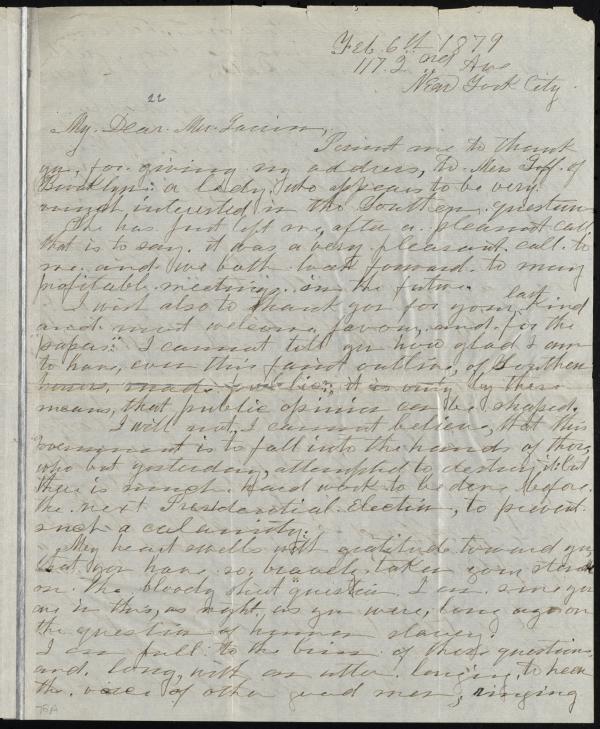 Feb. 6th 1879
117. 2nd Ave
New York City.
22
My Dear Mr. Garrison,
Permit me to thank
you, for giving my address, to Mrs Goff. of
Brooklyn: a lady, who appears to be very
much interested in the Southern question
She has just left me, after a pleasant call
that is to say. it was a very pleasant call. to
me. and we both look forward. to many
profitable meetings. in the future.
I wish also to thank you for your last kind
and most welcome favour, and for the
"papers." I cannot tell you how glad I am
to have, even this faint outline, of Southern
horrors, made public; it is only by these
means, that public opinion can be shaped.
I will not, I cannot believe, that this
Government is to fall into the hands of those,
who but yesterday, attempted to destroy it: but
there is much. hard work to be done before.
the next Presidential Election, to prevent
such a calamity.
My heart swells with gratitude toward you
that you have so, bravely taken your stand
on. The bloody shirt question I am. sure you
are in this, as right, as you were, long ago on
the question of human slavery.
I am full to the brim of these questions,
and long, with an utter. longing, to hear
the. voice of other good men, ringing
78A